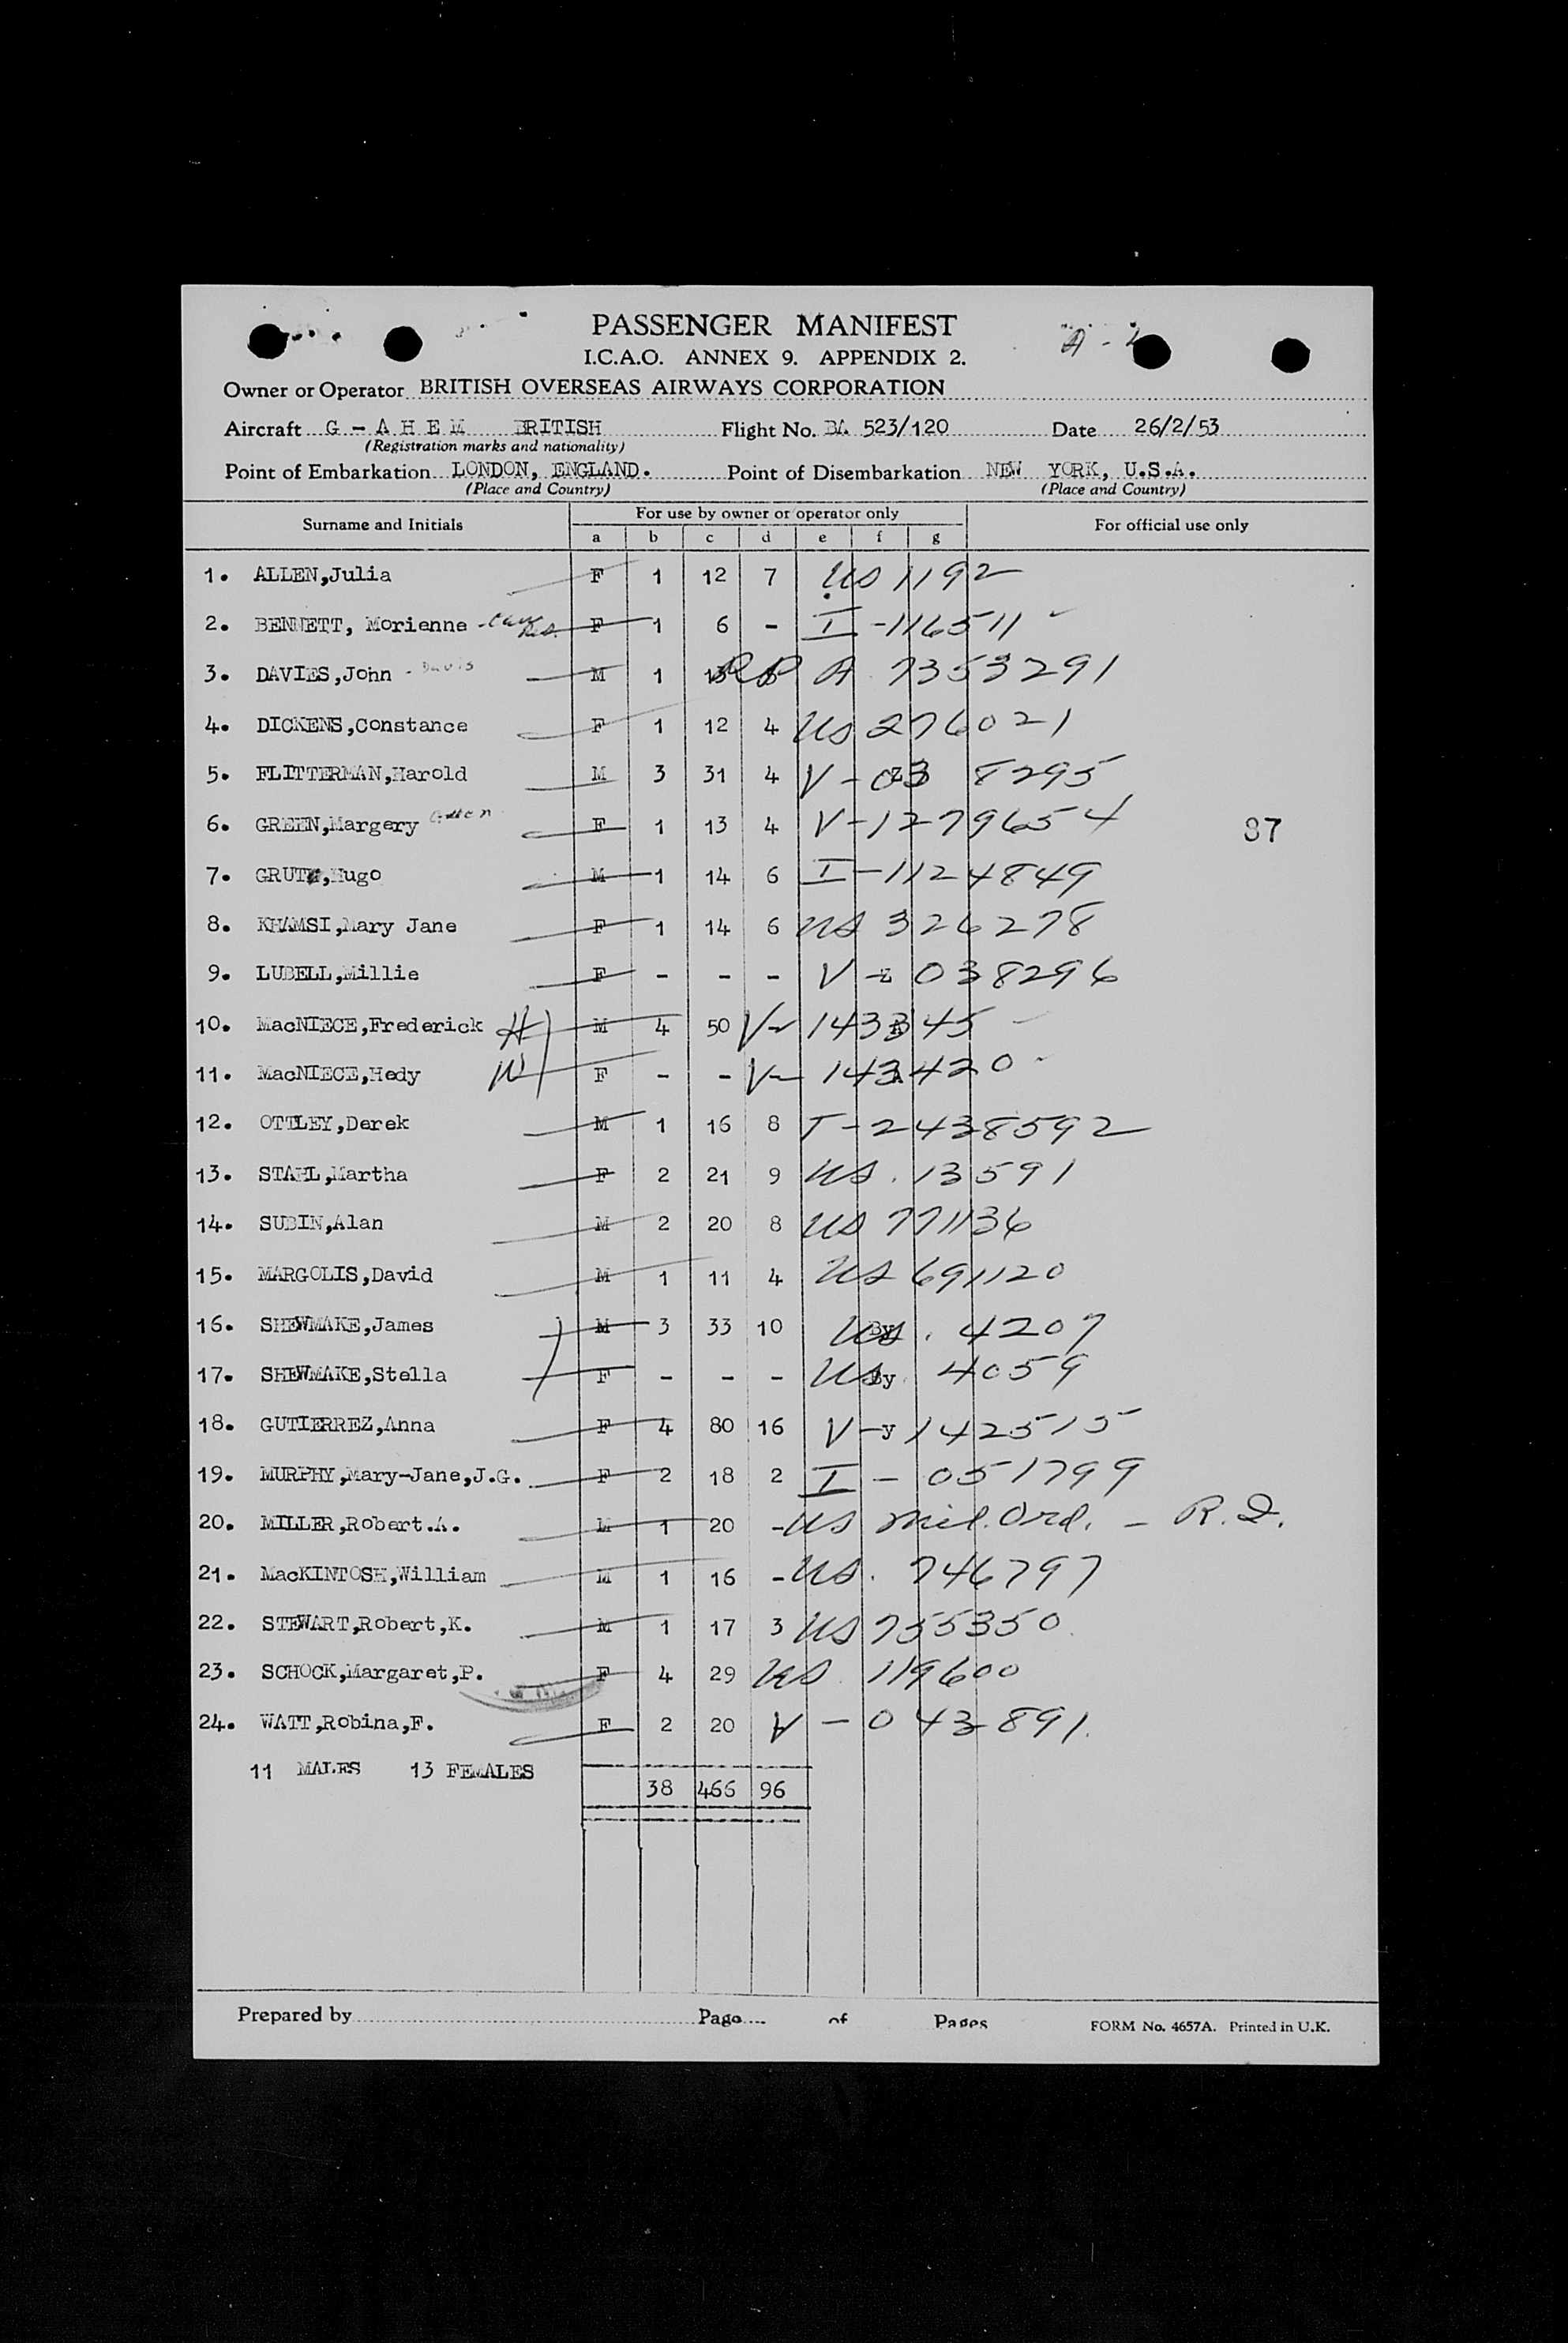 PASSENGER MANIFEST
I.C.A.O. ANNEX 9. APPENDIX 2.
Owner or Operator BRITISH OVERSEAS AIRWAYS CORPORATION
Aircraft G - A H E M BRITISH Flight No. BA 523/120 Date 26/2/53
(Registration marks and nationality)
Point of Embarkation LONDON, ENGLAND. Point of Disembarkation NEW YORK, U.S.A.
(Place and Country) (Place and Country)
Surname and Initials For use by owner or operator only For official use only
a b c d e f g
1. ALLEN,Julia F 1 12 7 US 1192
2. BENNETT, Morienne F 1 6 - I -116511
3. DAVIES,John - Davis M 1 13 A 7353291
4. DICKENS,Constance F 1 12 4 US 276021
5. FLITTERMAN,Harold M 3 31 4 V - 038295
6. GREEN,Margery F 1 13 4 V-1279654 87
7. GRUT,Hugo M 1 14 6 I-1124849
8. KHAMSI,Mary Jane F 1 14 6 US 326278
9. LUBELL,Millie F - - - V - 038296
10. MacNIECE,Frederick H M 4 50 V- 143345
11. MacNIECE,Hedy W F - - V- 143420
12. OTTLEY,Derek M 1 16 8 T-2438592
13. STAHL,Martha F 2 21 9 US. 13591
14. SUBIN,Alan M 2 20 8 US 771136
15. MARGOLIS,David M 1 11 4 US 691120
16. SHEWMAKE,James M 3 33 10 US. 4207
17. SHEWMAKE,Stella F - - - US By 4059
18. GUTIERREZ,Anna F 4 80 16 V-y 142515
19. MURPHY,Mary-Jane,J.G. F 2 18 2 I - 051799
20. MILLER,Robert.A. M 1 20 - US Mil. Ord. - R.I.
21. MacKINTOSH,William M 1 16 - US. 746797
22. STEWART,Robert,K. M 1 17 3 US 755350
23. SCHOCK,Margaret,P. F 4 29 US 119600
24. WATT,Robina,F. F 2 20 V - 043891.
11 MALES 13 FEMALES
38 466 96
Prepared by Page of Pages FORM No. 4657A. Printed in U.K.